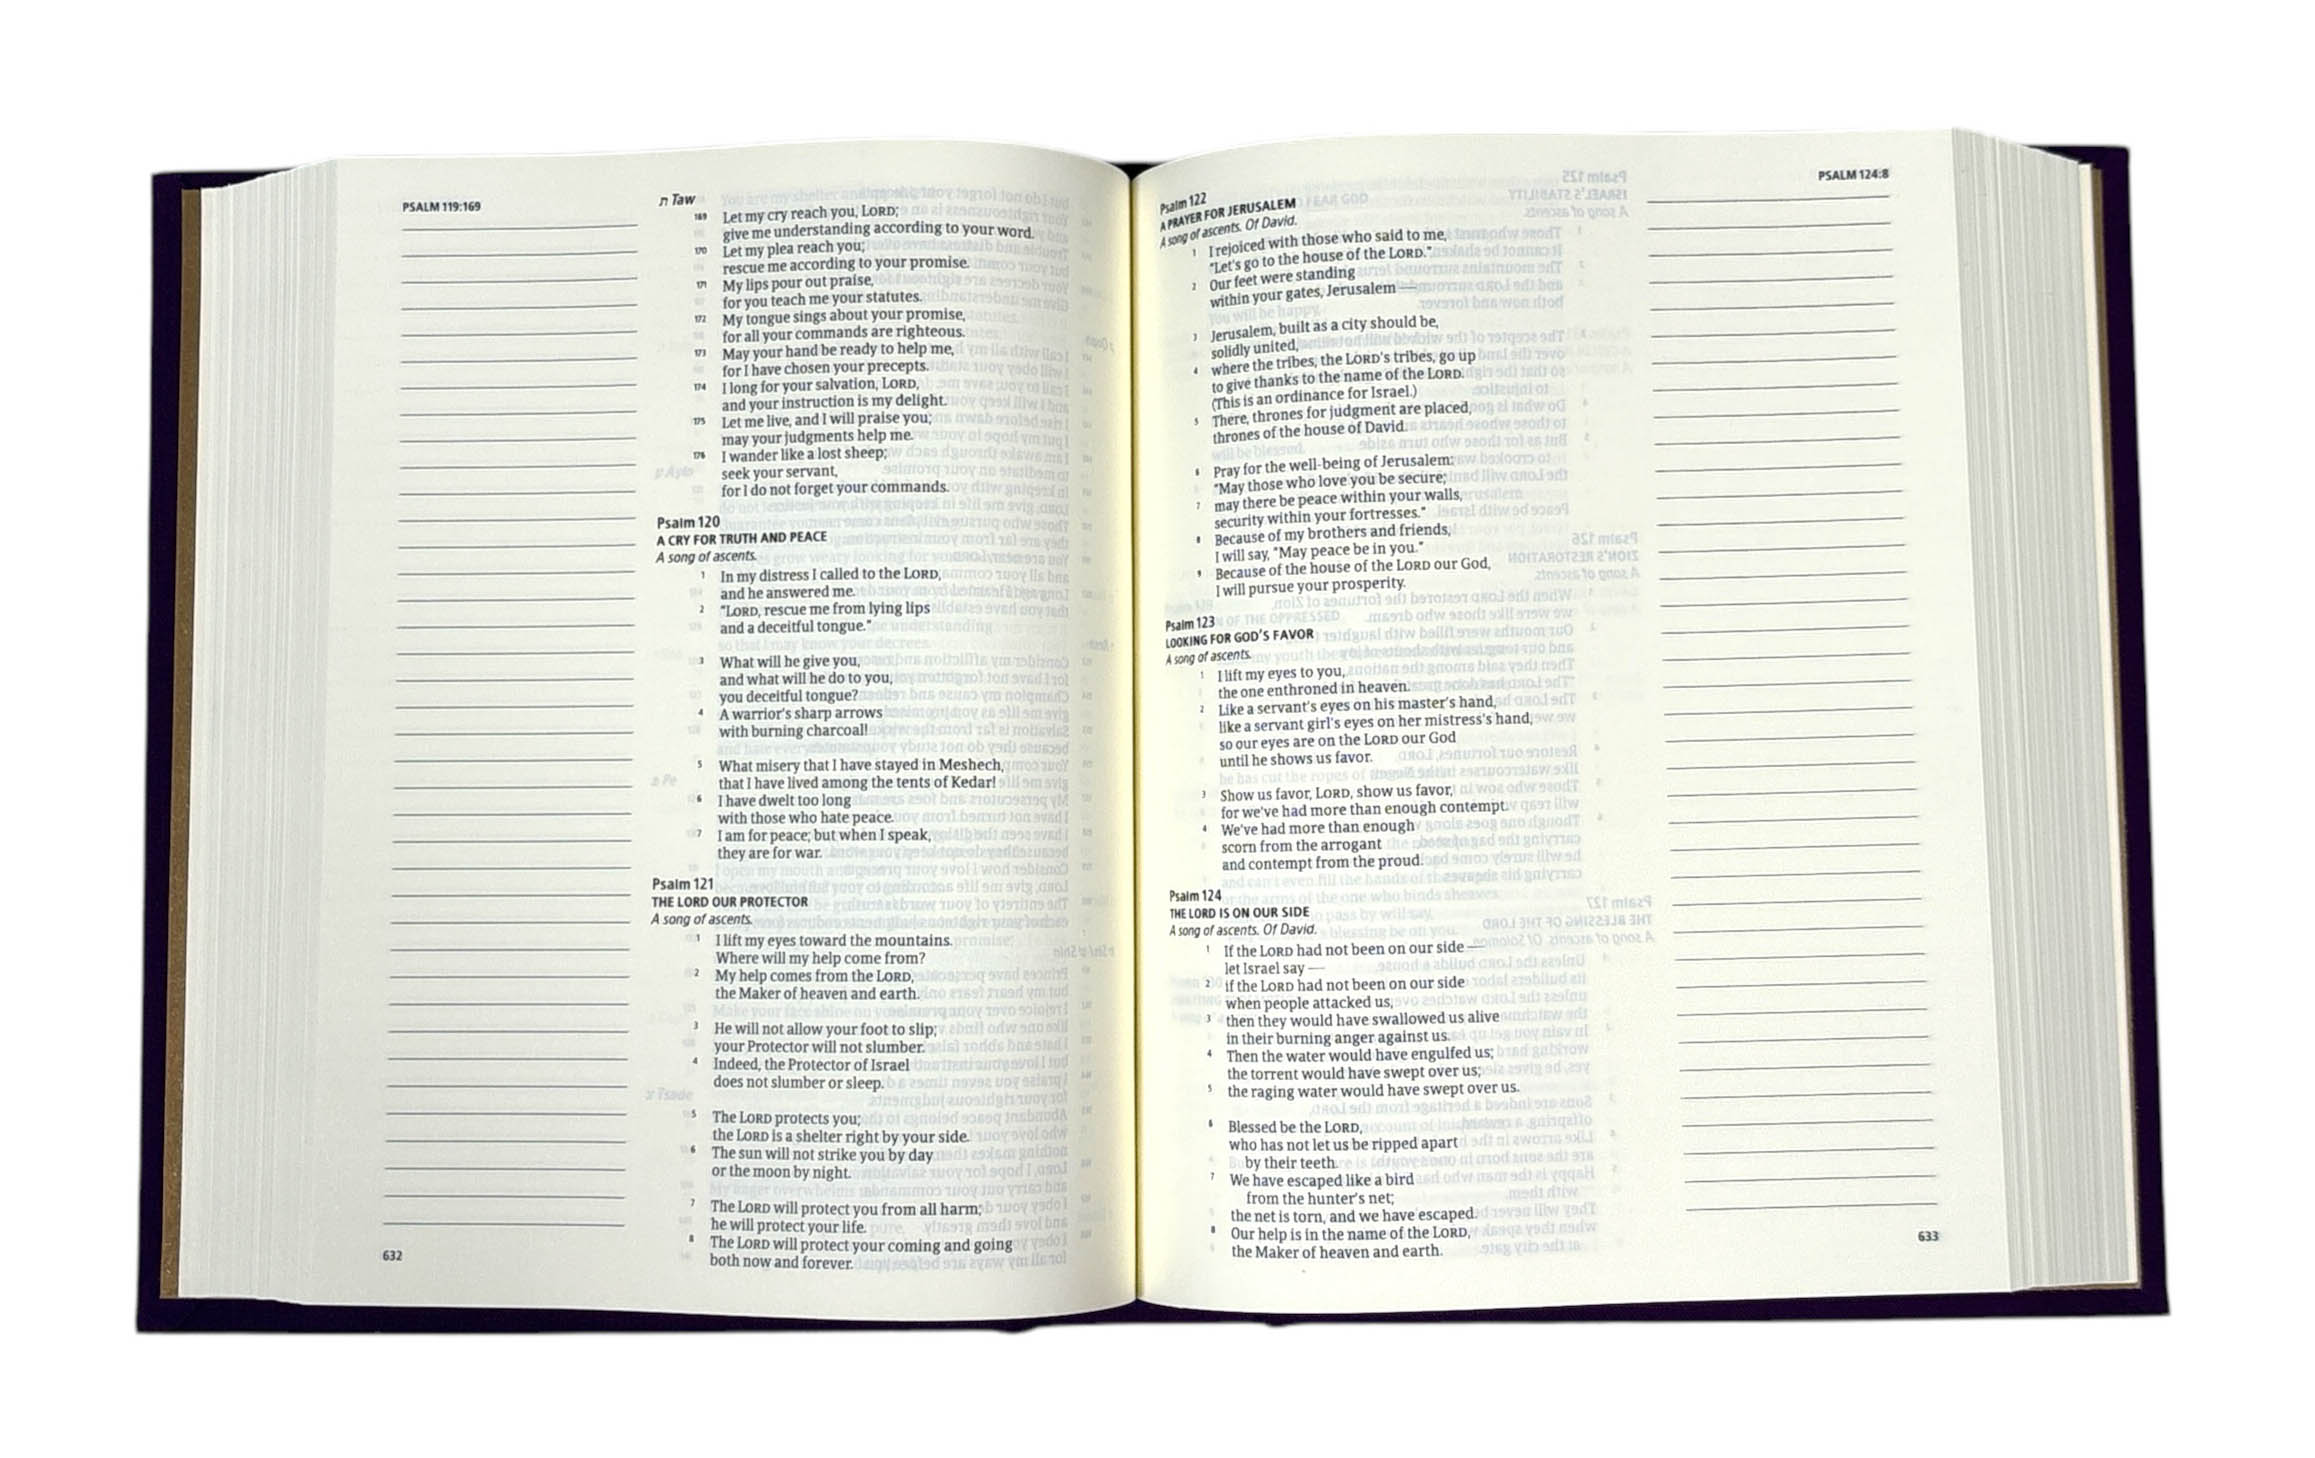 PSALM 119:169
ת Taw
169 Let my cry reach you, LORD;
give me understanding according to your word.
170 Let my plea reach you;
rescue me according to your promise.
171 My lips pour out praise,
for you teach me your statutes.
172 My tongue sings about your promise,
for all your commands are righteous.
173 May your hand be ready to help me,
for I have chosen your precepts.
174 I long for your salvation, LORD,
and your instruction is my delight.
175 Let me live, and I will praise you;
may your judgments help me.
176 I wander like a lost sheep;
seek your servant,
for I do not forget your commands.
Psalm 120
A CRY FOR TRUTH AND PEACE
A song of ascents.
1 In my distress I called to the LORD,
and he answered me.
2 "LORD, rescue me from lying lips
and a deceitful tongue."
3 What will he give you,
and what will he do to you,
you deceitful tongue?
4 A warrior's sharp arrows
with burning charcoal!
5 What misery that I have stayed in Meshech,
that I have lived among the tents of Kedar!
6 I have dwelt too long
with those who hate peace.
7 I am for peace; but when I speak,
they are for war.
Psalm 121
THE LORD OUR PROTECTOR
A song of ascents.
1 I lift my eyes toward the mountains.
Where will my help come from?
2 My help comes from the LORD,
the Maker of heaven and earth.
3 He will not allow your foot to slip;
your Protector will not slumber.
4 Indeed, the Protector of Israel
does not slumber or sleep.
5 The LORD protects you;
the LORD is a shelter right by your side.
6 The sun will not strike you by day
or the moon by night.
7 The LORD will protect you from all harm;
he will protect your life.
8 The LORD will protect your coming and going
both now and forever.
632
Psalm 122
A PRAYER FOR JERUSALEM
A song of ascents. Of David.
1 I rejoiced with those who said to me,
"Let's go to the house of the LORD."
2 Our feet were standing
within your gates, Jerusalem —
3 Jerusalem, built as a city should be,
solidly united,
4 where the tribes, the LORD's tribes, go up
to give thanks to the name of the LORD.
(This is an ordinance for Israel.)
5 There, thrones for judgment are placed,
thrones of the house of David.
6 Pray for the well-being of Jerusalem:
"May those who love you be secure;
7 may there be peace within your walls,
security within your fortresses."
8 Because of my brothers and friends,
I will say, "May peace be in you."
9 Because of the house of the LORD our God,
I will pursue your prosperity.
Psalm 123
LOOKING FOR GOD'S FAVOR
A song of ascents.
1 I lift my eyes to you,
the one enthroned in heaven.
2 Like a servant's eyes on his master's hand,
like a servant girl's eyes on her mistress's hand,
so our eyes are on the LORD our God
until he shows us favor.
3 Show us favor, LORD, show us favor,
for we've had more than enough contempt.
4 We've had more than enough
scorn from the arrogant
and contempt from the proud.
Psalm 124
THE LORD IS ON OUR SIDE
A song of ascents. Of David.
1 If the LORD had not been on our side —
let Israel say —
2 if the LORD had not been on our side
when people attacked us,
3 then they would have swallowed us alive
in their burning anger against us.
4 Then the water would have engulfed us;
the torrent would have swept over us;
5 the raging water would have swept over us.
6 Blessed be the LORD,
who has not let us be ripped apart
by their teeth.
7 We have escaped like a bird
from the hunter's net;
the net is torn, and we have escaped.
8 Our help is in the name of the LORD,
the Maker of heaven and earth.
PSALM 124:8
633